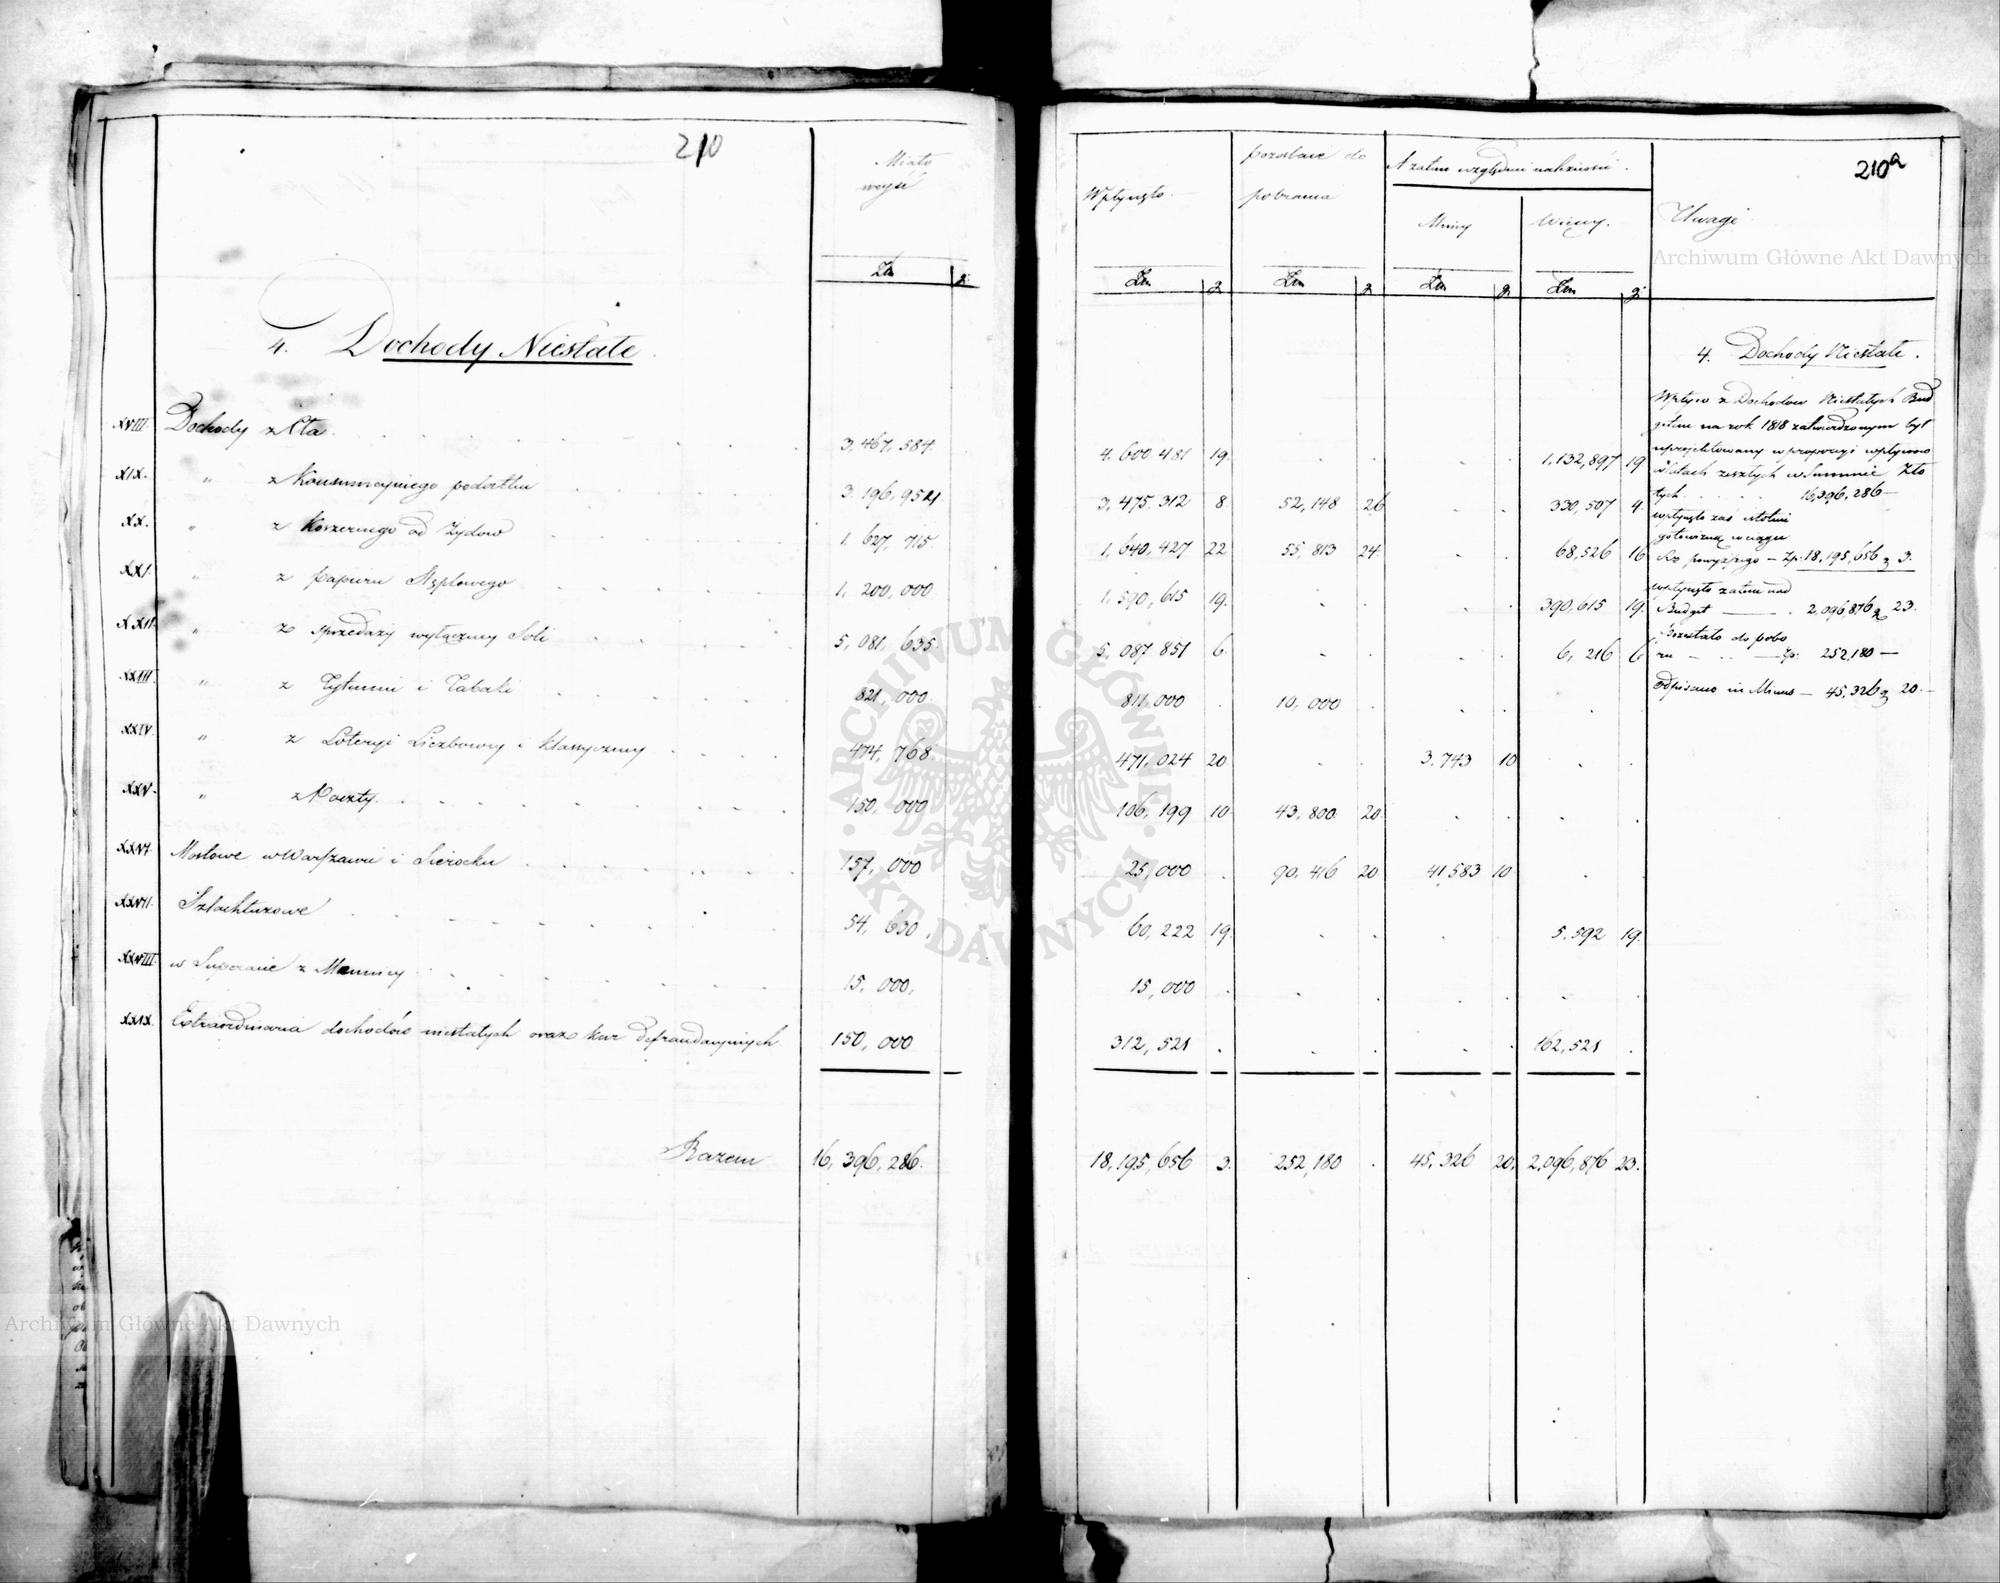 210
Miało
wejść
Zło
g.
4. Dochody Niestałe.
XVIII. Dochody z Cła 3,467,584.
XIX. " z Konsumcyjnego podatku 3,196,954
XX. " z Koszernego od Żydów 1,627,715.
XXI. " z Papieru Stęplowego 1,200,000
XXII. " z sprzedaży wyłączney Soli 5,081,635.
XXIII. " z Tytuniu i Tabaki 821,000
XXIV. " z Loteryi Liczbowey i Klassyczney 474,768.
XXV. " z Poczty 150,000
XXVI. Mostowe w Warszawie i Sierocku 157,000
XXVII. Szlachtuzowe 54,630.
XXVIII. w Superacie z Mennicy 15,000.
XXIX. Extraordinaria dochodów niestałych oraz kar defraudacyjnych 150,000
Razem 16,396,286.
210a
Wpłynęło pozostaie do pobrania A zatem względnie należności. Uwagi
Mniey Więcey.
4,600 481 19. 1,132,897 19
3,475,312 8 52,148 26 330,507 4.
1,640,427 22 55,813 24 68,526 16
1,590,615 19. 390,615 19.
5,087 851 6. 6,216 6
811,000 10,000
471,024 20 3,743 10
106,199 10 43,800 20
25,000 90,416 20 41,583 10
60,222 19. 5,592 19.
15,000
312,521 162,521
18,195,656 3. 252,180 45,326 20. 2,096,876 23.
4. Dochody Niestałe.
Wpływ z Dochodow Niestałych Bud
getem na rok 1818 zatwierdzonym był
uprojektowany w proporcyi wpływow
w latach zeszłych w Summie Zło
tych 16,396,286 —
wpłynęło zaś istotnie
gotowizną w ciągu
Ro powyższego — Zp. 18,195,656 g 3.
wpłynęło zatem nad
Budget — 2,096,876 g 23.
Pozostało do pobo
ru — Zp. 252,180 —
Odpisano in Minus — 45,326 g 20. —
Archiwum Główne Akt Dawnych
ARCHIWUM GŁÓWNE AKT DAWNYCH
Archiwum Główne Akt Dawnych